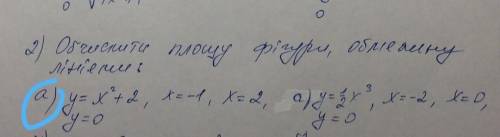 2) Обчислити площу фігури, обмежину
лініями:
а) y=x²+2, x=-1, x=2, а) y=½x³, x=-2, x=0,
y=0 y=0